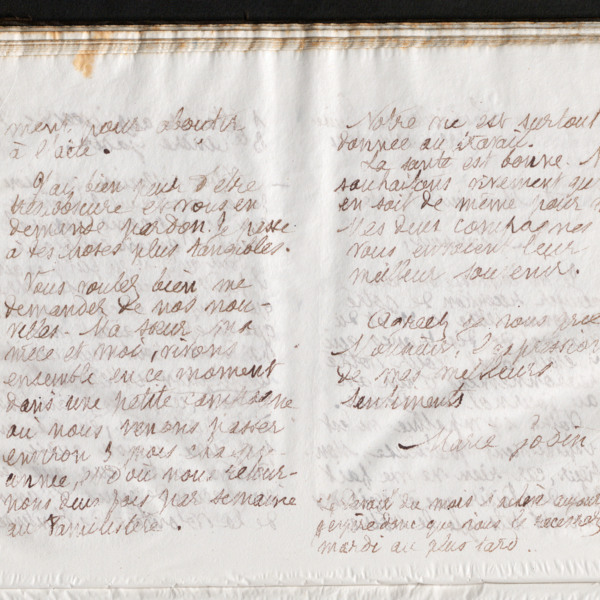 ment pour aboutir
à l'acte.
J'ai bien peur d'être
très obscure et vous en
demande pardon. Je passe
à des choses plus tangibles.
Vous voulez bien me
demander de nos nou-
velles. Ma sœur, ma
nièce et moi, vivons
ensemble en ce moment
dans une petite campagne
où nous venons passer
environ 5 mois chaque
année, d'où nous retour-
nons deux fois par semaine
au Familistère.
Notre vie est surtout
donnée au travail.
La santé est bonne. N
souhaitons vivement qu
en soit de même pour
Mes deux compagnes
vous envoient leur
meilleur souvenir.
Agréez je vous prie
l'expression
de mes meilleurs
sentiments
Marie Godin
Le Devoir du mois
j'espère donc que vous le recevrez
mardi au plus tard.